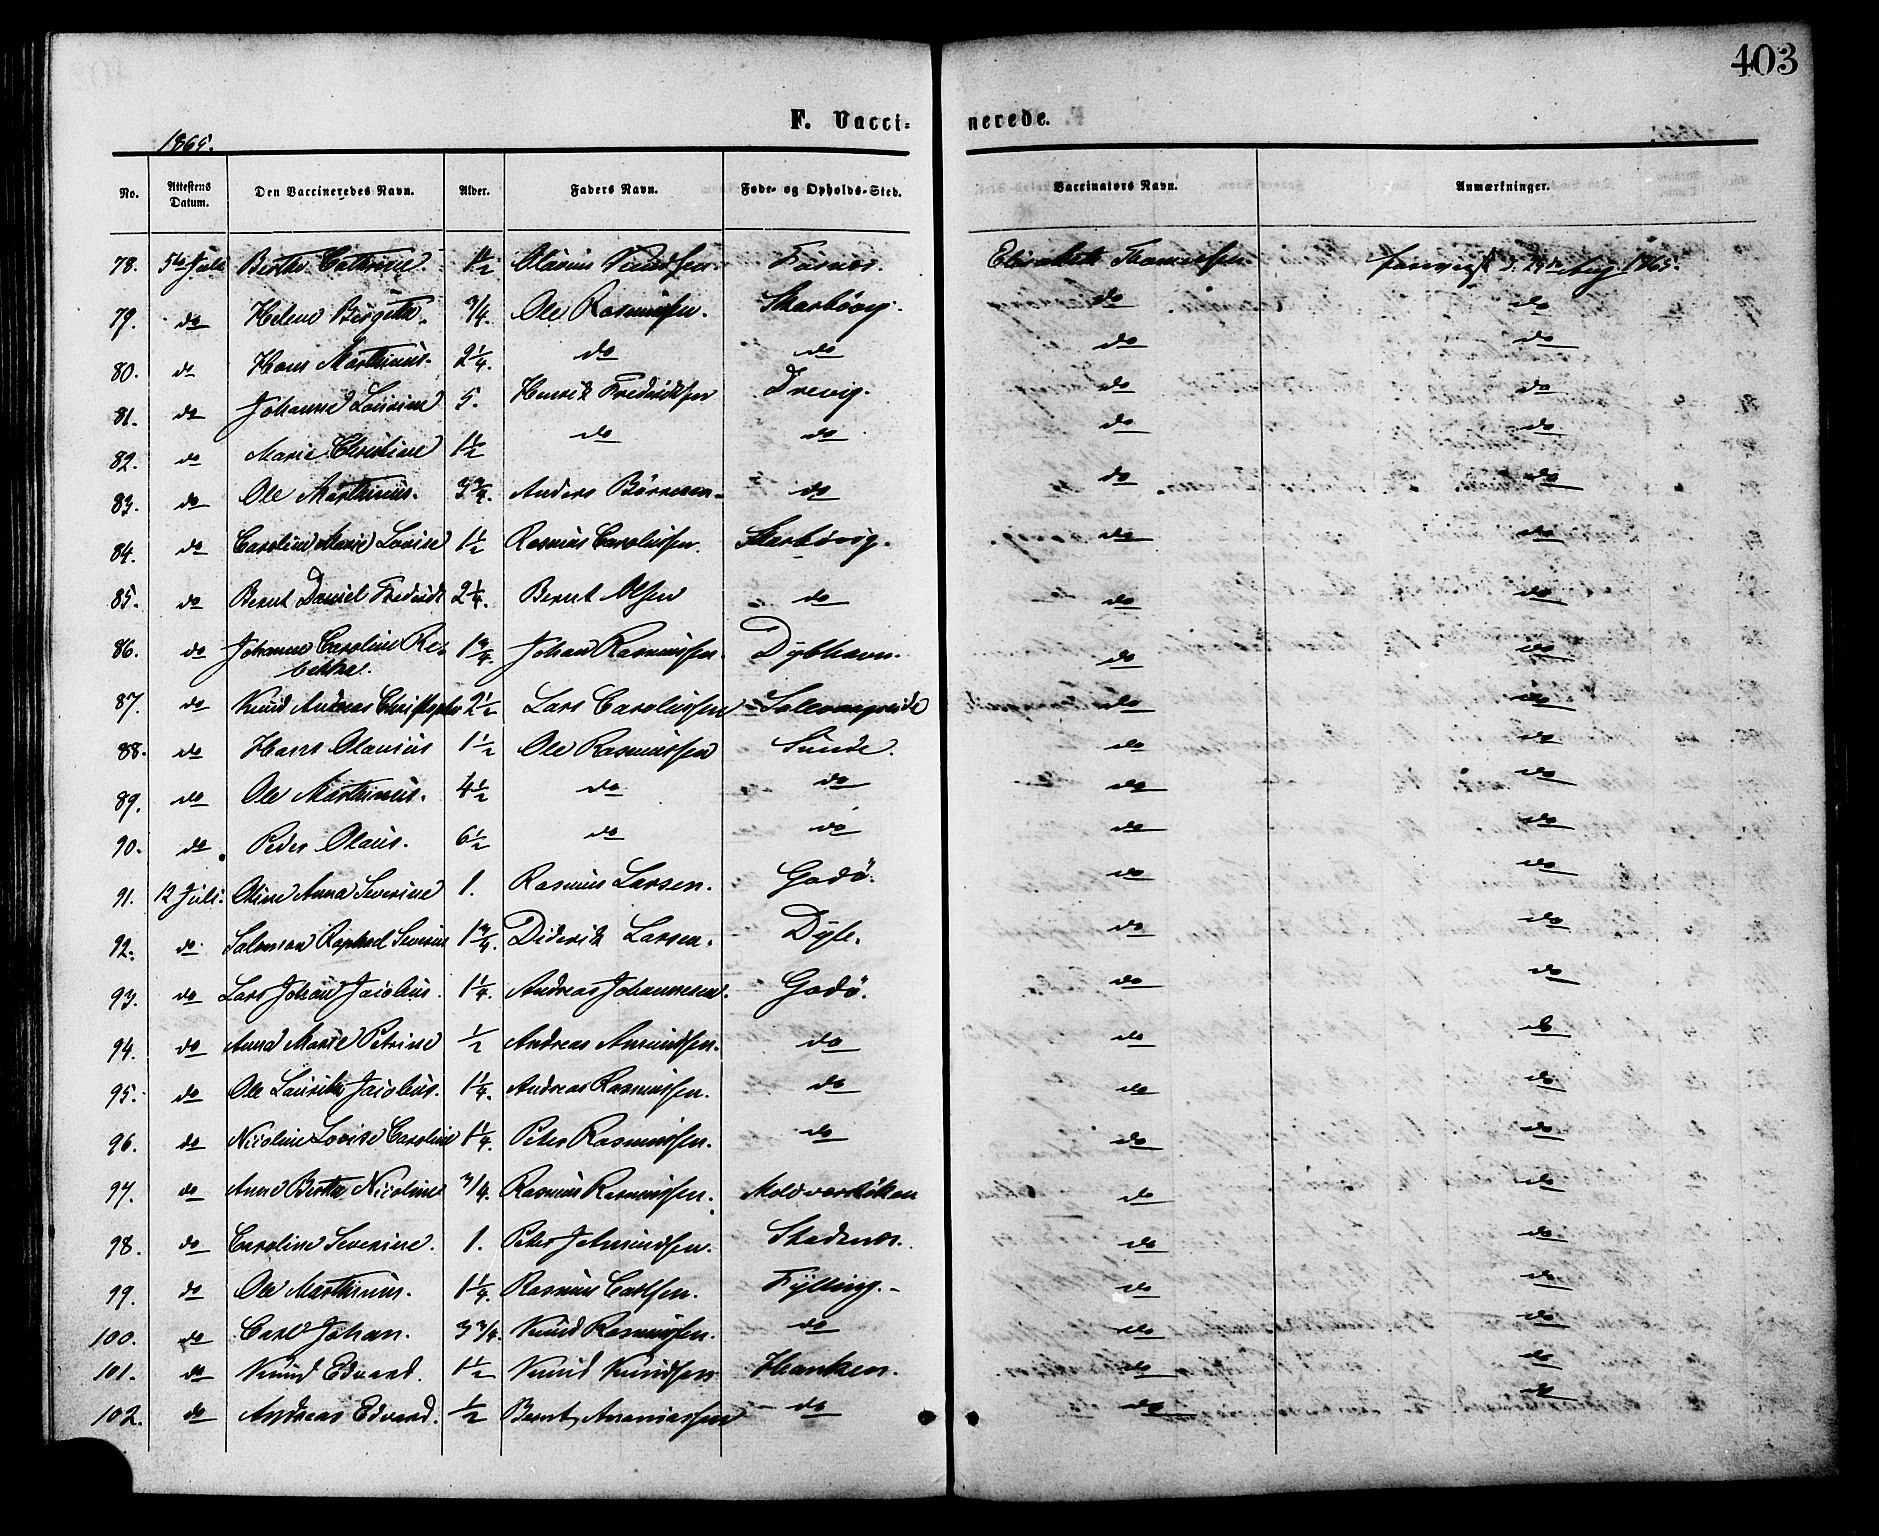 403
F. Vacci- nerede.
1865.
No. Attestens Datum. Den Vaccineredes Navn. Alder. Faders Navn. Føde- og Opholds-Sted. Vaccinators Navn. Anmærkninger.
78. 5te Juli Berthe Cathrine. 1 1/2 Olaus Elisabeth Thomassen. 29de Aug. 1865.
79. do Helene Birgitte. 3/4. Ole Rasmussen. Skarbøvig. do do
80. do Hans Marthinus. 2 1/4. do do do do
81. do Johanne Lovise 5. Henrik Fredriksen Drevig. do do
82. do Marie Christine 1 1/2 do do do do
83. do Ole Marthinus. 3 3/4. Anders Børresen do do do
84. do Caroline Marie Lovise 1 1/2 Rasmus Carolussen. Skarbøvig. do do
85. do Bernt Daniel Fredrik 2 1/4. Bernt Olsen do do do
86. do Johanne Caroline Re- 1 3/4. Johan Rasmussen. Dybhavn. do do
bekka.
87. do Knud Andreas Christopher 2 1/2 Lars Carolussen do do
88. do Hans Olausius 1 1/2 Ole Rasmussen Sunde. do do
89. do Ole Marthinus. 4 1/2 do do do do
90. do Peder Olaus. 6 1/2 do do do do
91. 12 Juli. Oline Anna Severine 1. Rasmus Larsen. Godø. do do
92. do Salomon Raphael Severin 1 3/4. Diderik Larsen. Dyb. do do
93. do Lars Johan Jacobus. 1 1/4. Andreas Johannesen. Godø. do do
94. do Anna Marie Petrine 1/2 Andreas Amundsen. do do do
95. do Ole Lauritz Jacobus. 1 1/4. Andreas Rasmussen. do do do
96. do Nicoline Lovise Caroline 1 1/4. Peter Rasmussen. do do do
97. do Anne Berthe Nicoline 3/4. Rasmus Rasmussen. Moldværskøken do do
98. do Caroline Severine. 1. Peter J Amundsen. Stadsnes. do do
99. do Ole Marthinus. 1 1/4. Rasmus Carlsen. Fylling. do do
100. do Carl Johan. 3 3/4. Knud Rasmussen. do do do
101. do Knud Edvard. 1 1/2 Knud Knudsen Hanken. do do
102. do Andreas Edvard. 1/2 Bernt Ananiassen do do do